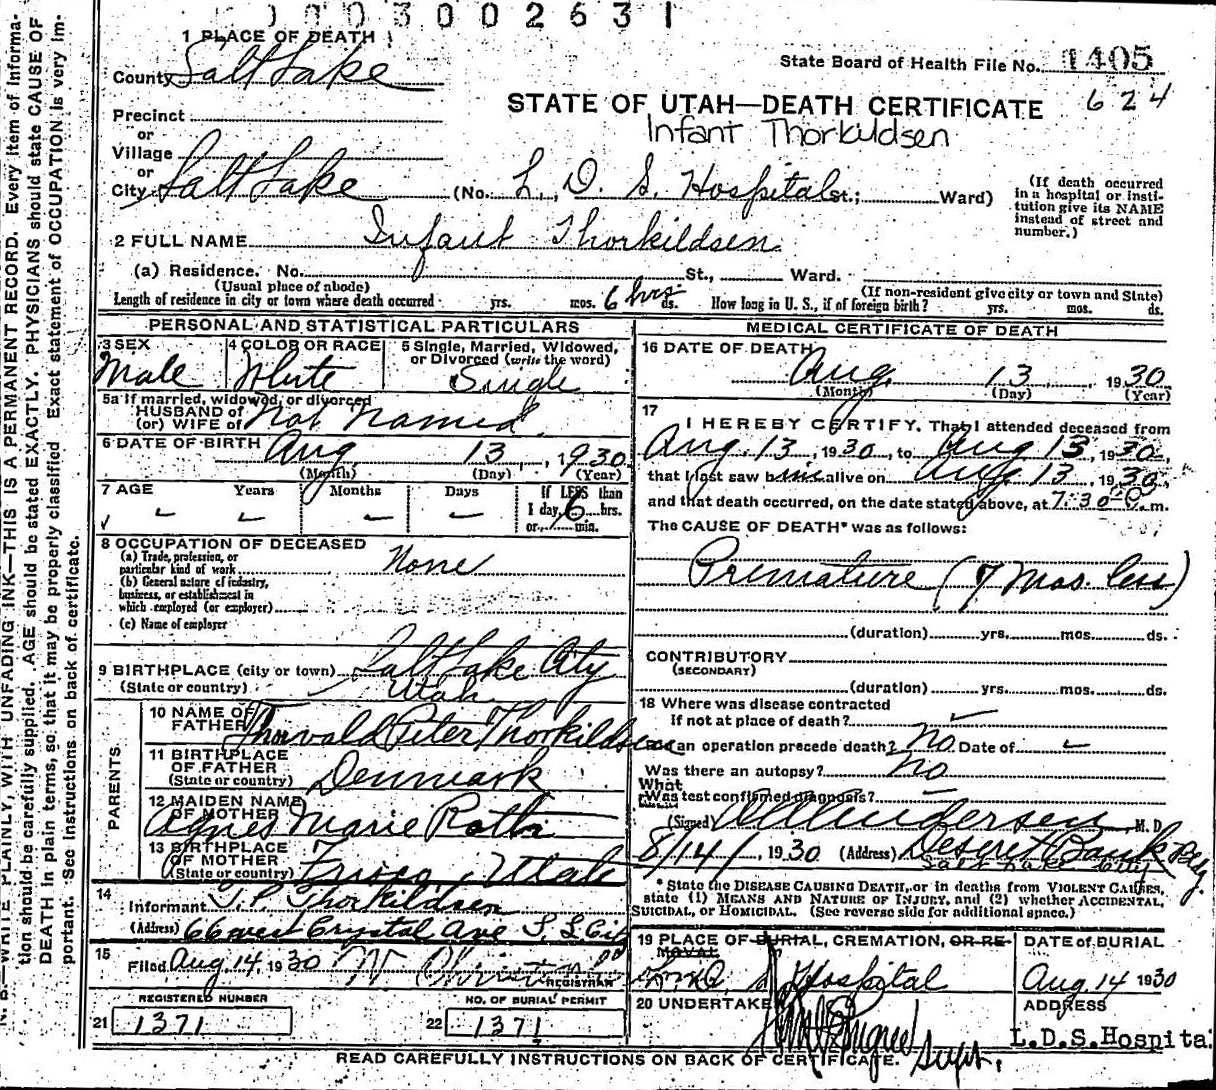 0 0 0 3 0 0 2 6 3 1
1 PLACE OF DEATH
County Salt Lake
State Board of Health File No. 1405
Precinct
STATE OF UTAH—DEATH CERTIFICATE 624
or
Infant Thorkildsen
Village
or
City Salt Lake (No. L. D. S. Hospital St.; Ward)
(If death occurred in a hospital or insti-
tution give its NAME
instead of street and
number.)
2 FULL NAME Infant Thorkildsen
(a) Residence. No. St., Ward.
(Usual place of abode) (If non-resident give city or town and State)
Length of residence in city or town where death occurred yrs. mos. 6 hrs ds. How long in U. S., if of foreign birth? yrs. mos. ds.
PERSONAL AND STATISTICAL PARTICULARS
3 SEX 4 COLOR OR RACE 5 Single, Married, Widowed,
or Divorced (write the word)
Male White Single
5a If married, widowed, or divorced
HUSBAND of
(or) WIFE of Not Named
6 DATE OF BIRTH Aug 13, 1930
(Month) (Day) (Year)
7 AGE Years Months Days If LESS than
1 day, 6 hrs.
or min.
8 OCCUPATION OF DECEASED
(a) Trade, profession, or
particular kind of work None
(b) General nature of industry,
business, or establishment in
which employed (or employer)
(c) Name of employer
9 BIRTHPLACE (city or town) Salt Lake City
(State or country) Utah
PARENTS
10 NAME OF
FATHER Thorvald Peter Thorkildsen
11 BIRTHPLACE
OF FATHER
(State or country) Denmark
12 MAIDEN NAME
OF MOTHER Agnes Marie
13 BIRTHPLACE
OF MOTHER
(State or country) Frisco, Utah
14
Informant T. P. Thorkildsen
(Address) 66 west Crystal Ave S. L. City
15
Filed Aug 14, 1930
REGISTRAR
REGISTERED NUMBER NO. OF BURIAL PERMIT
21 1371 22 1371
MEDICAL CERTIFICATE OF DEATH
16 DATE OF DEATH
Aug. 13, 1930
(Month) (Day) (Year)
17
I HEREBY CERTIFY, That I attended deceased from
Aug. 13, 1930, to Aug 13, 1930,
that I last saw him alive on Aug 13, 1930,
and that death occurred, on the date stated above, at 7:30 P. m.
The CAUSE OF DEATH* was as follows:
Premature (7 Mos. less)
(duration) yrs. mos. ds.
CONTRIBUTORY
(SECONDARY)
(duration) yrs. mos. ds.
18 Where was disease contracted
If not at place of death?
an operation precede death? No. Date of
Was there an autopsy? No
What
Was test confirmed diagnosis?
(Signed) Andersen M. D.
8/14/, 1930 (Address) Deseret Bank Bldg.
Salt Lake City
* State the DISEASE CAUSING DEATH, or in deaths from VIOLENT CAUSES,
state (1) MEANS AND NATURE OF INJURY, and (2) whether ACCIDENTAL,
SUICIDAL, or HOMICIDAL. (See reverse side for additional space.)
19 PLACE OF BURIAL, CREMATION, OR RE-
MOVAL
L. D. S. Hospital
DATE of BURIAL
Aug. 14 1930
20 UNDERTAKER
Supt.
ADDRESS
L.D.S.Hospital
READ CAREFULLY INSTRUCTIONS ON BACK OF CERTIFICATE.
N. B.—WRITE PLAINLY, WITH UNFADING INK—THIS IS A PERMANENT RECORD. Every item of informa-
tion should be carefully supplied. AGE should be stated EXACTLY. PHYSICIANS should state CAUSE OF
DEATH in plain terms, so that it may be properly classified. Exact statement of OCCUPATION is very im-
portant. See instructions on back of certificate.